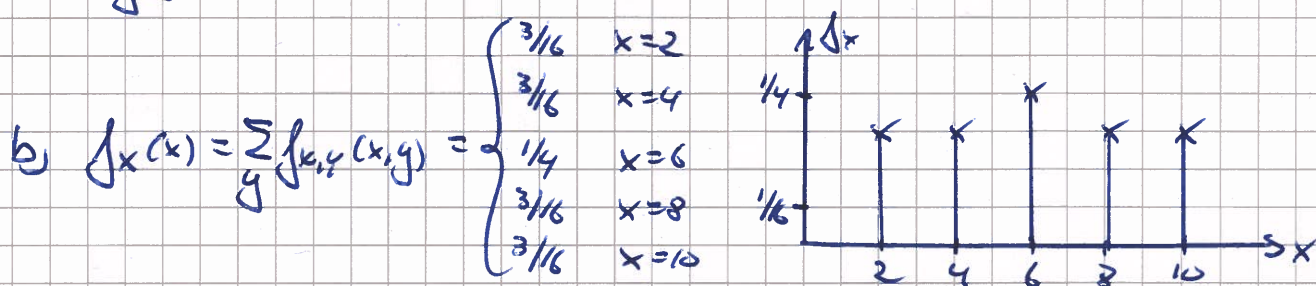 b, f_X(x) = Σ_y f_{X,Y}(x,y) = {
3/16 x=2
3/16 x=4
1/4 x=6
3/16 x=8
3/16 x=10
f_X
1/4
1/16
2 4 6 8 10
x